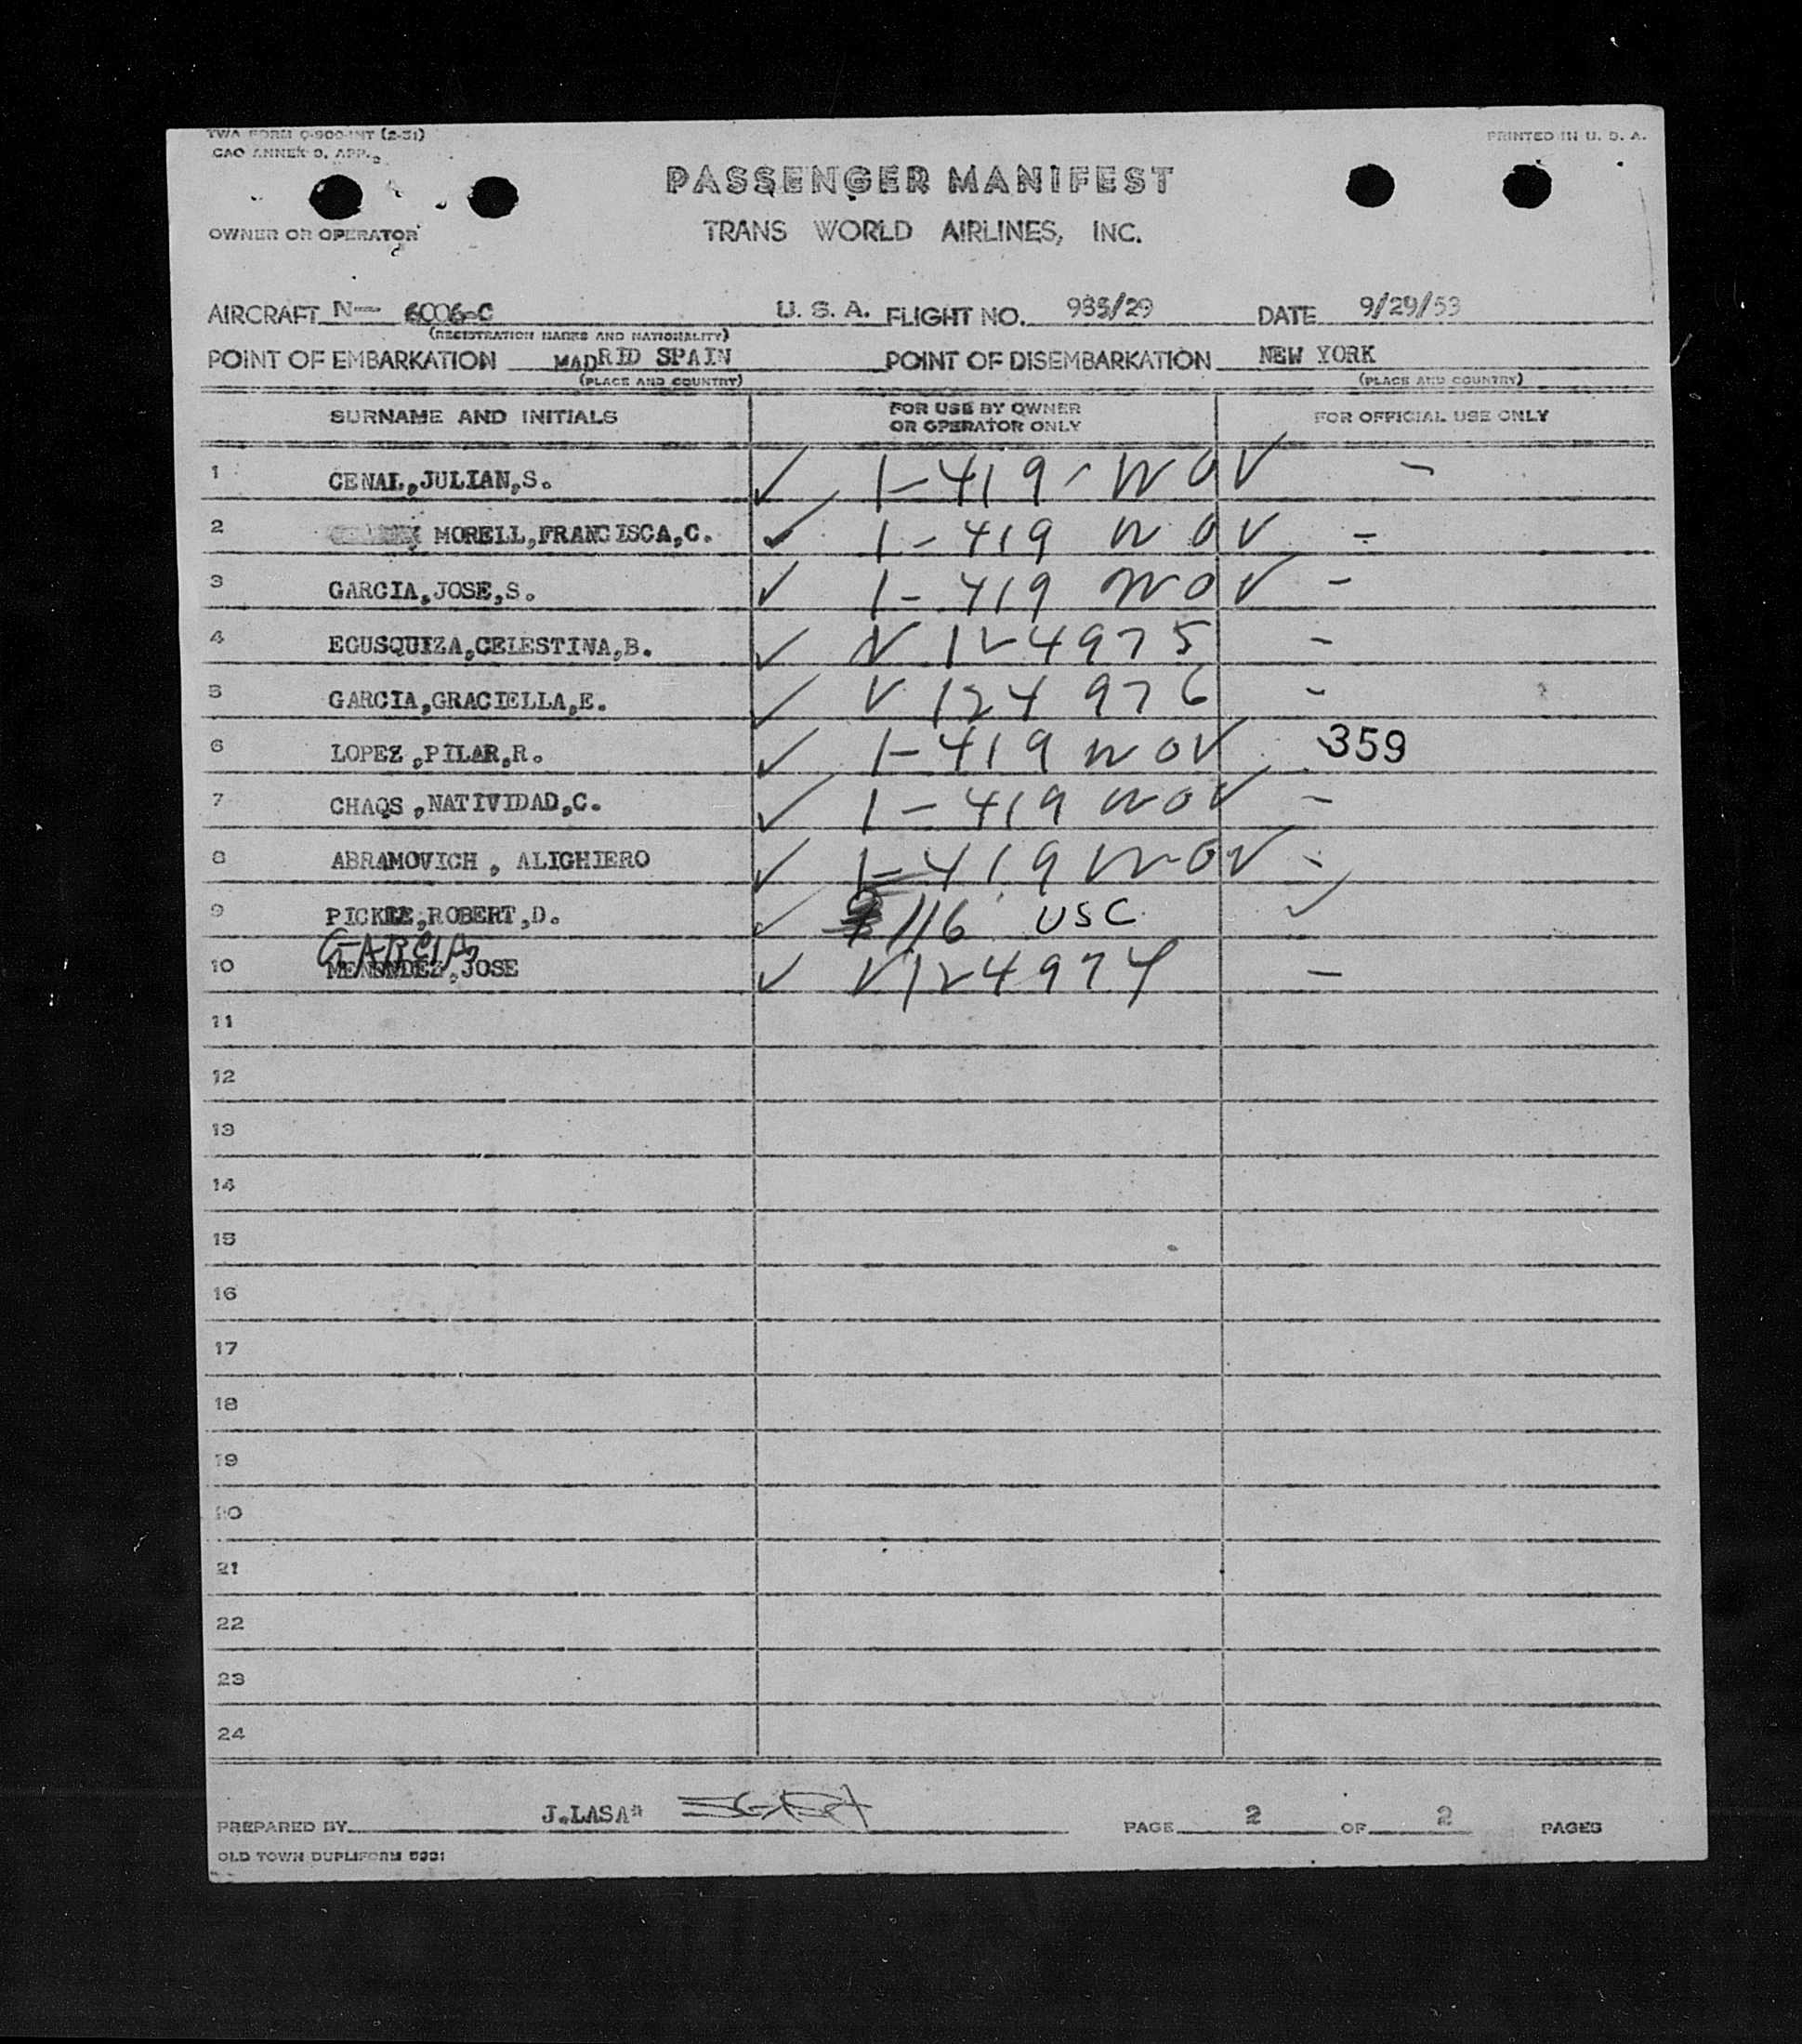 TWA FORM O-900-INT (2-51)
CAO ANNEX 9, APP.
PRINTED IN U. S. A.
PASSENGER MANIFEST
OWNER OR OPERATOR
TRANS WORLD AIRLINES, INC.
AIRCRAFT N- 6006-C U. S. A. FLIGHT NO. 935/29 DATE 9/29/53
(REGISTRATION MARKS AND NATIONALITY)
POINT OF EMBARKATION MADRID SPAIN POINT OF DISEMBARKATION NEW YORK
(PLACE AND COUNTRY) (PLACE AND COUNTRY)
SURNAME AND INITIALS FOR USE BY OWNER OR OPERATOR ONLY FOR OFFICIAL USE ONLY
1 CENAL,JULIAN,S. ✓ 1-419-WOV -
2 MORELL,FRANCISCA,C. ✓ 1-419 WOV -
3 GARCIA,JOSE,S. ✓ 1-419 WOV -
4 EGUSQUIZA,CELESTINA,B. ✓ V 124975 -
5 GARCIA,GRACIELLA,E. ✓ V 124976 -
6 LOPEZ,PILAR,R. ✓ 1-419 WOV 359
7 CHAOS,NATIVIDAD,C. ✓ 1-419 WOV -
8 ABRAMOVICH, ALIGHIERO ✓ 1-419 WOV -
9 PICKLE,ROBERT,D. ✓ 116 USC ✓
GARCIA
10 MENENDEZ,JOSE ✓ V124974 -
11
12
13
14
15
16
17
18
19
20
21
22
23
24
PREPARED BY J.LASA" PAGE 2 OF 2 PAGES
OLD TOWN DUPLIFORM 5331